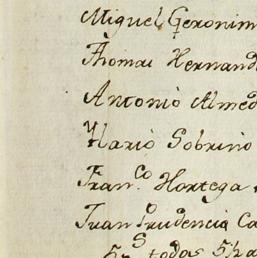 Miguel Geronim
Thomas Hernand
Antonio Almed
Mario Sobrino
Fran.co Hortega
Juan Prudencio Ca
todos